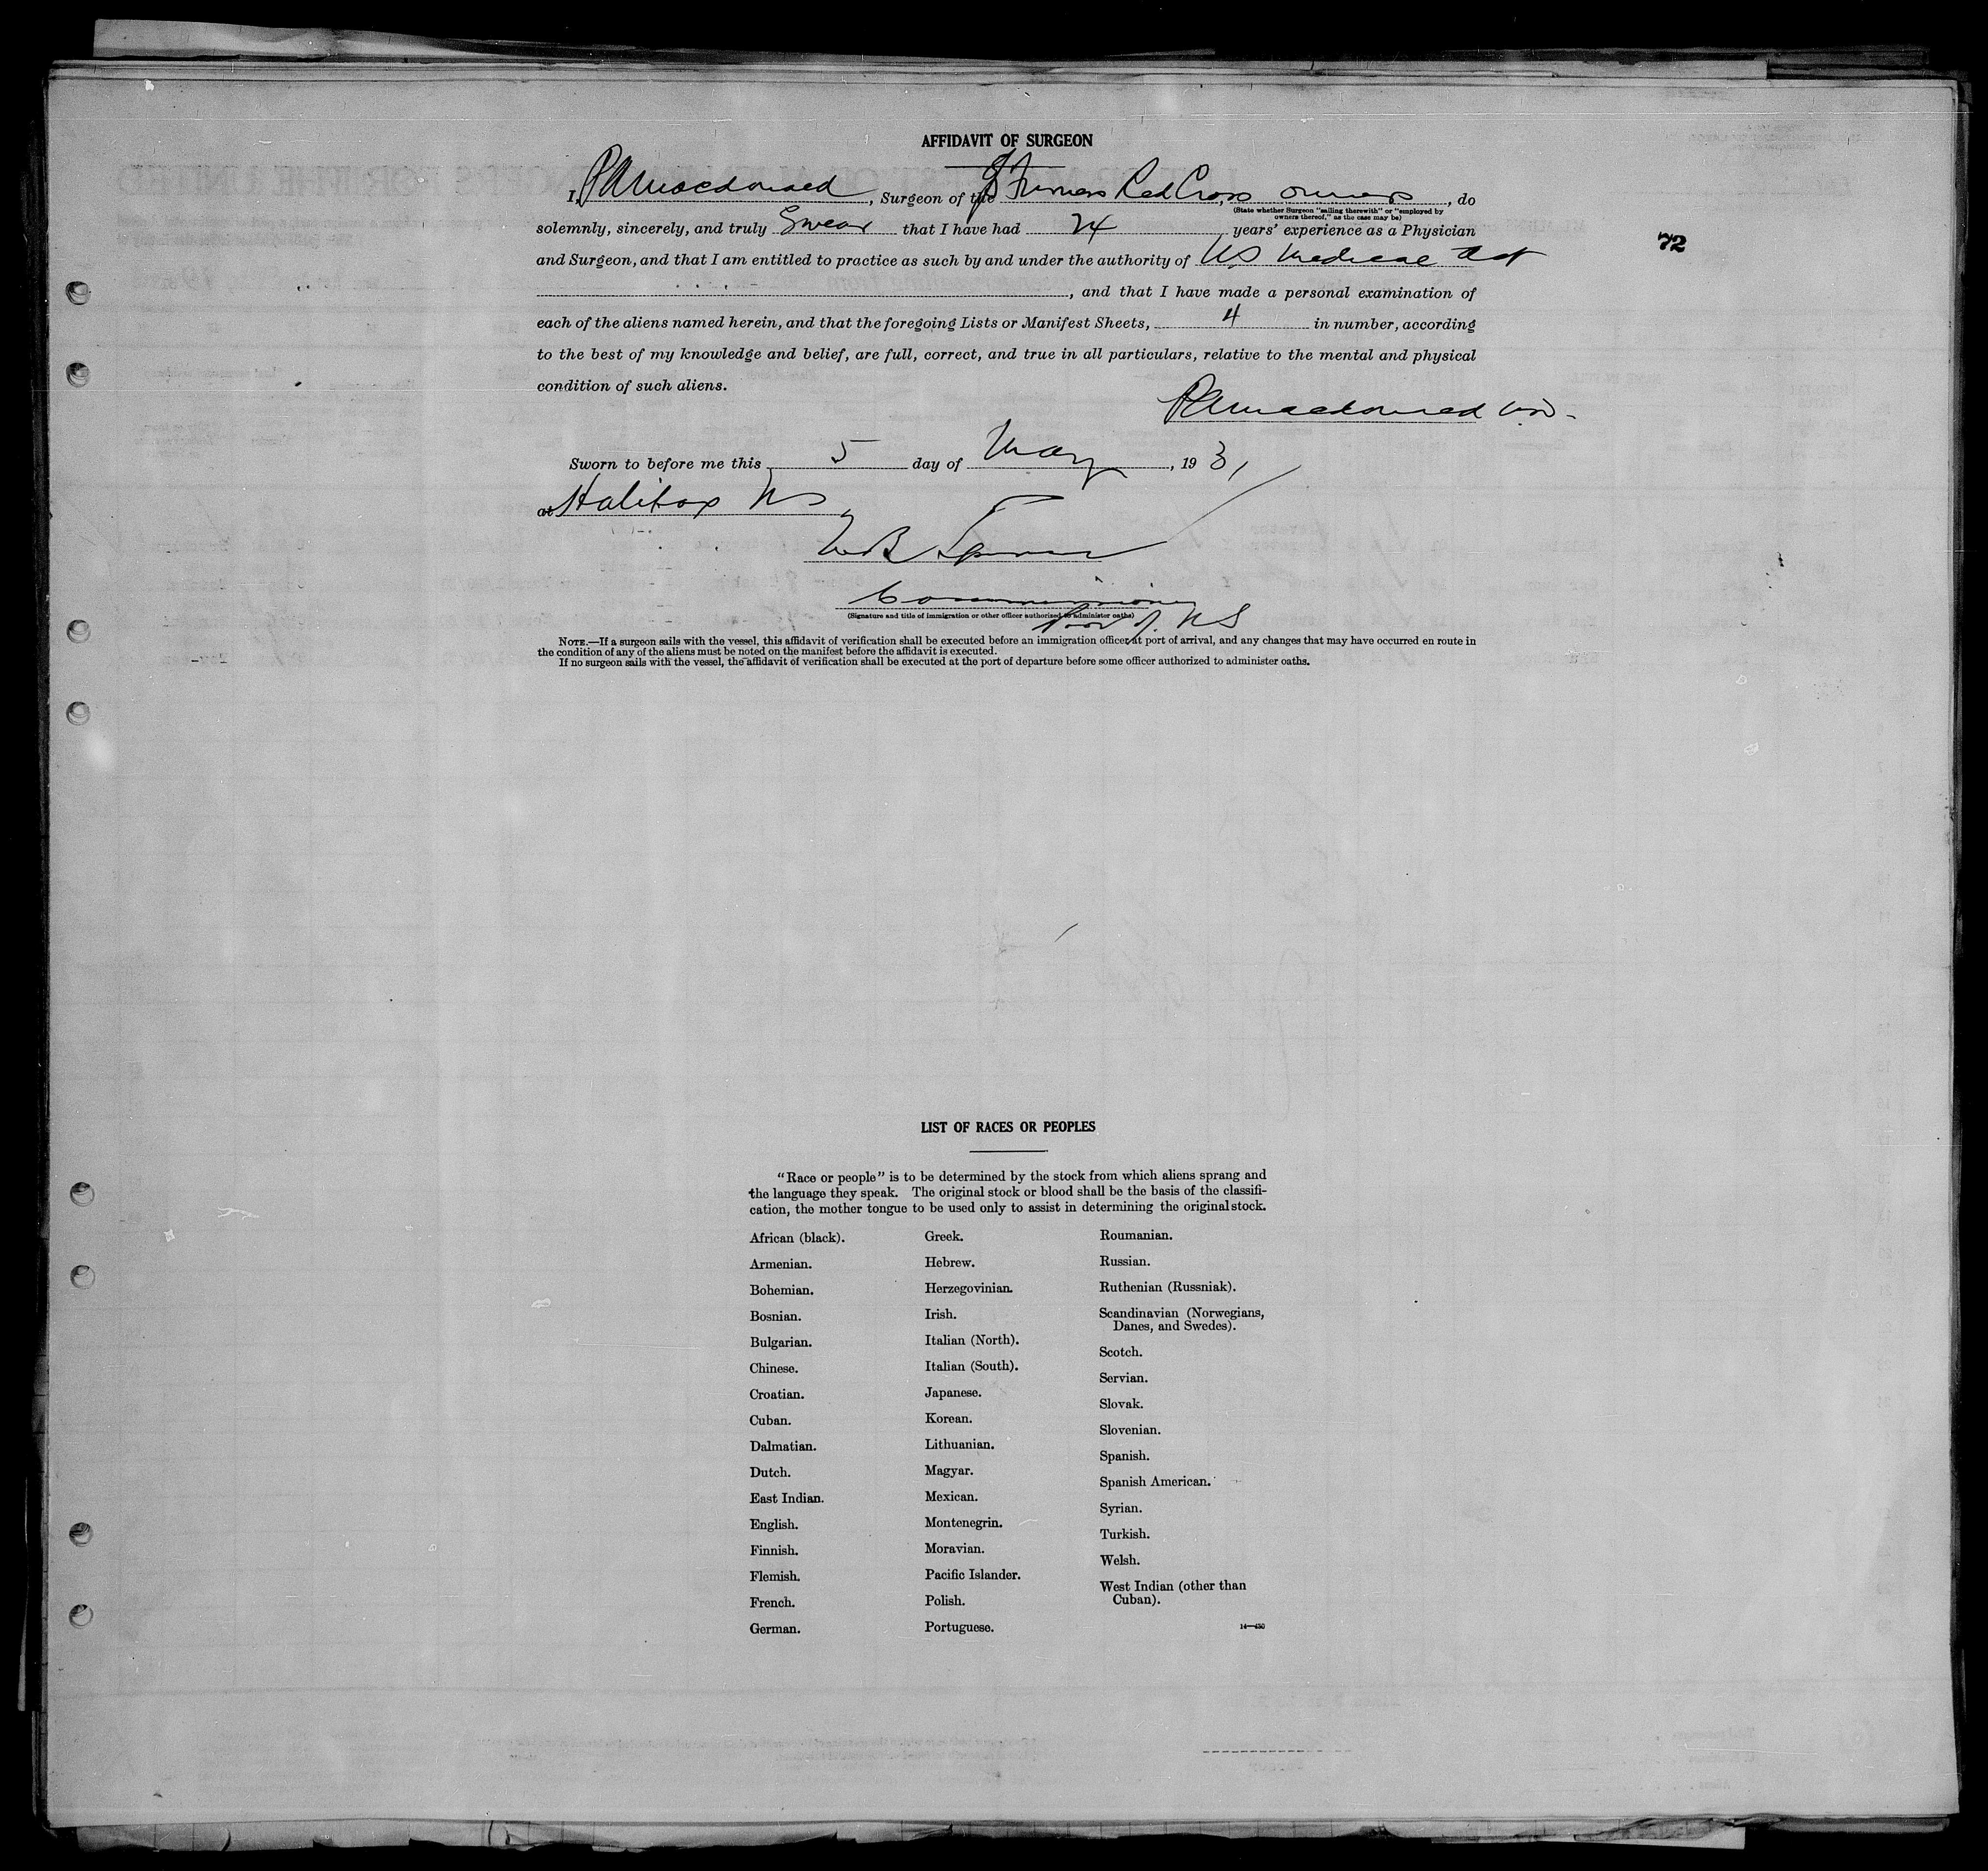 AFFIDAVIT OF SURGEON
I, P A Macdonald, Surgeon of the Furness Red Cross owners, do
(State whether Surgeon "sailing therewith" or "employed by
owners thereof," as the case may be)
solemnly, sincerely, and truly Swear that I have had 24 years' experience as a Physician
72
and Surgeon, and that I am entitled to practice as such by and under the authority of NS Medical Act
, and that I have made a personal examination of
each of the aliens named herein, and that the foregoing Lists or Manifest Sheets, 4 in number, according
to the best of my knowledge and belief, are full, correct, and true in all particulars, relative to the mental and physical
condition of such aliens.
P A Macdonald MD.
Sworn to before me this 5 day of May, 1931
at Halifax NS
Commissioner
(Signature and title of immigration or other officer authorized to administer oaths)
Prov of NS
NOTE.—If a surgeon sails with the vessel, this affidavit of verification shall be executed before an immigration officer at port of arrival, and any changes that may have occurred en route in
the condition of any of the aliens must be noted on the manifest before the affidavit is executed.
If no surgeon sails with the vessel, the affidavit of verification shall be executed at the port of departure before some officer authorized to administer oaths.
LIST OF RACES OR PEOPLES
"Race or people" is to be determined by the stock from which aliens sprang and
the language they speak. The original stock or blood shall be the basis of the classifi-
cation, the mother tongue to be used only to assist in determining the original stock.
African (black).
Armenian.
Bohemian.
Bosnian.
Bulgarian.
Chinese.
Croatian.
Cuban.
Dalmatian.
Dutch.
East Indian.
English.
Finnish.
Flemish.
French.
German.
Greek.
Hebrew.
Herzegovinian.
Irish.
Italian (North).
Italian (South).
Japanese.
Korean.
Lithuanian.
Magyar.
Mexican.
Montenegrin.
Moravian.
Pacific Islander.
Polish.
Portuguese.
Roumanian.
Russian.
Ruthenian (Russniak).
Scandinavian (Norwegians,
Danes, and Swedes).
Scotch.
Servian.
Slovak.
Slovenian.
Spanish.
Spanish American.
Syrian.
Turkish.
Welsh.
West Indian (other than
Cuban).
14—430